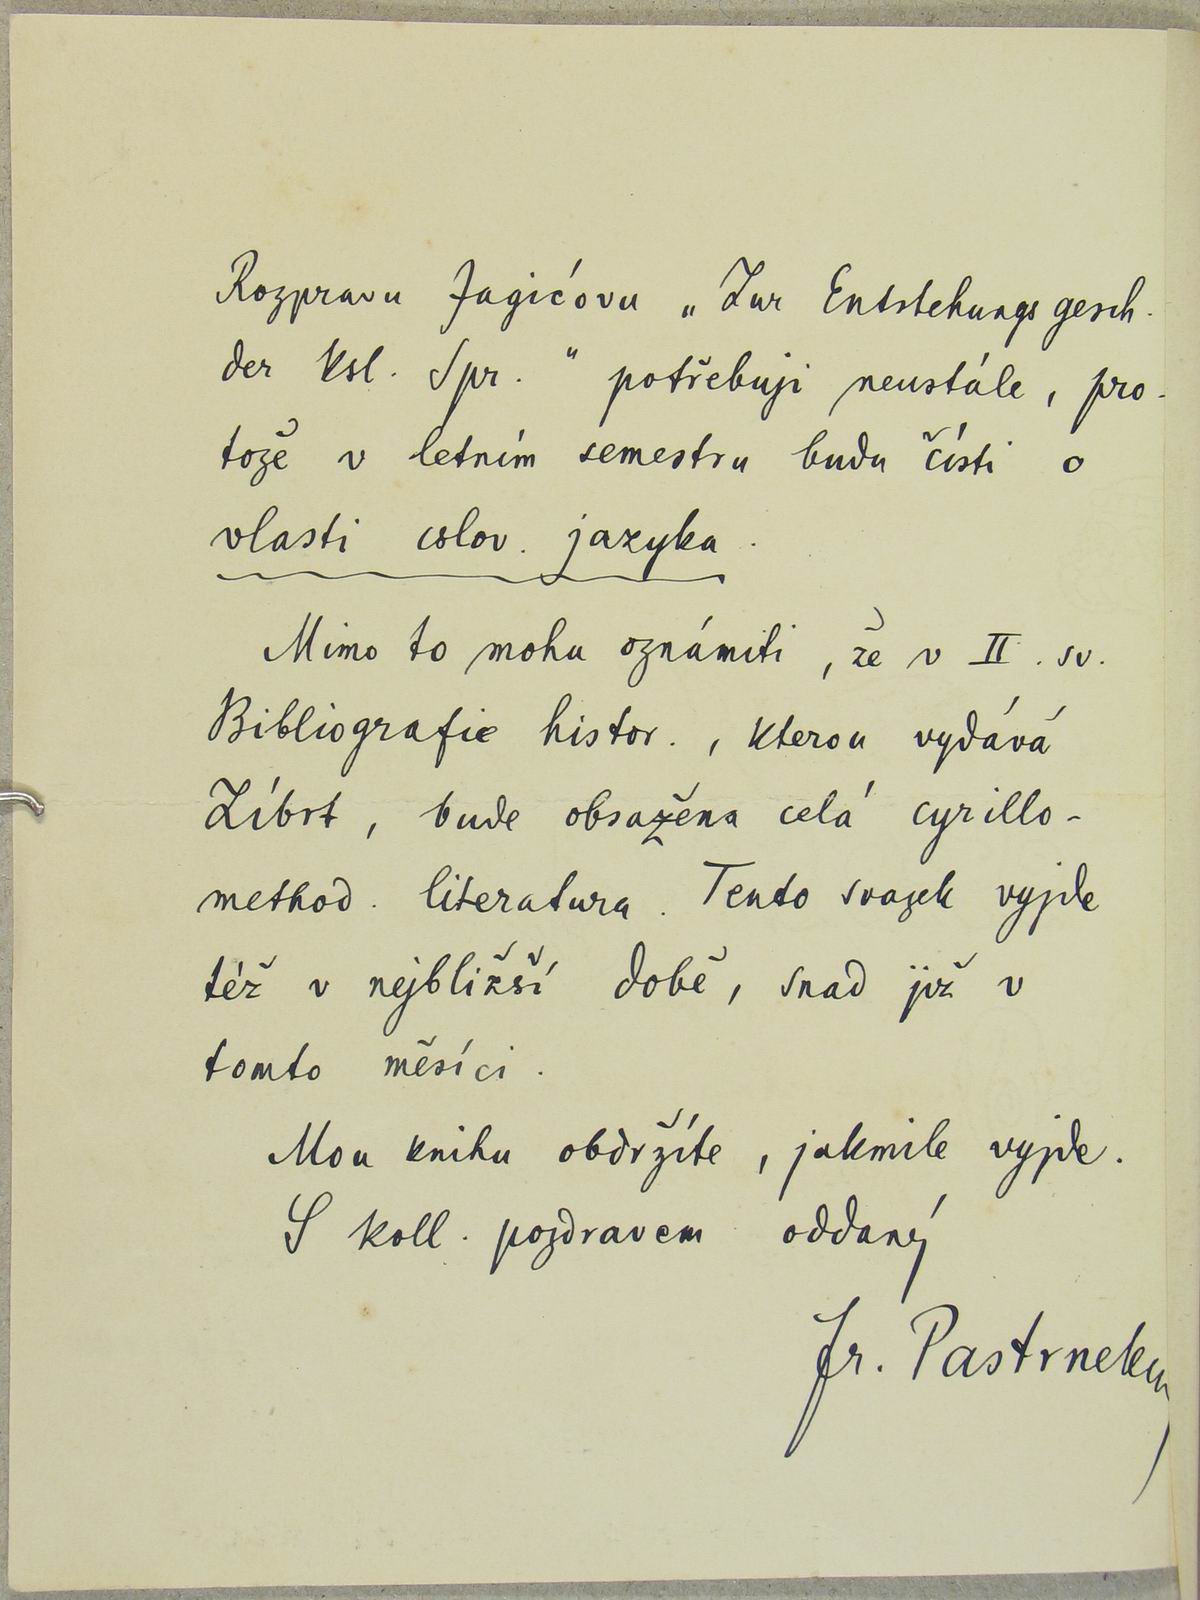 Rozpravu Jagićovu „Zur Entstehungsgesch.
der ksl. Spr." potřebuji neustále, pro-
tože v letním semestru budu čísti o
vlasti cslov. jazyka.
Mimo to mohu oznámiti, že v II. sv.
Bibliografie histor., kterou vydává
Zíbrt, bude obsažena celá cyrillo-
method. literatura. Tento svazek vyjde
též v nejbližší době, snad již v
tomto měsíci.
Mou knihu obdržíte, jakmile vyjde.
S koll. pozdravem oddaný
Fr. Pastrnek